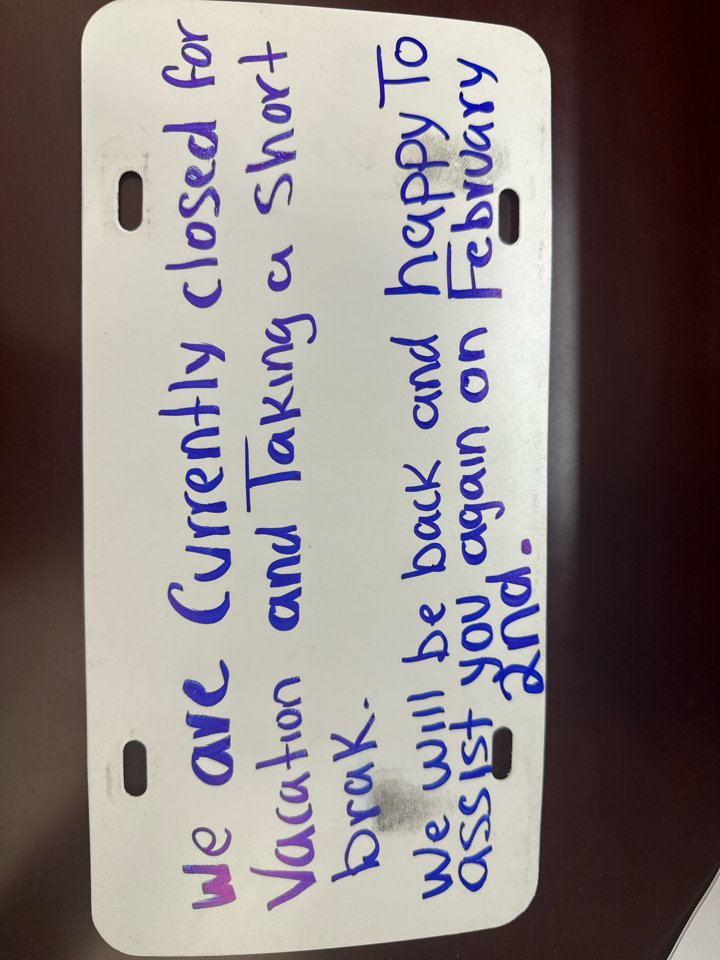 we are Currently closed for
Vacation and Taking a short
brak.
we will be back and happy To
assist you again on February
2nd.